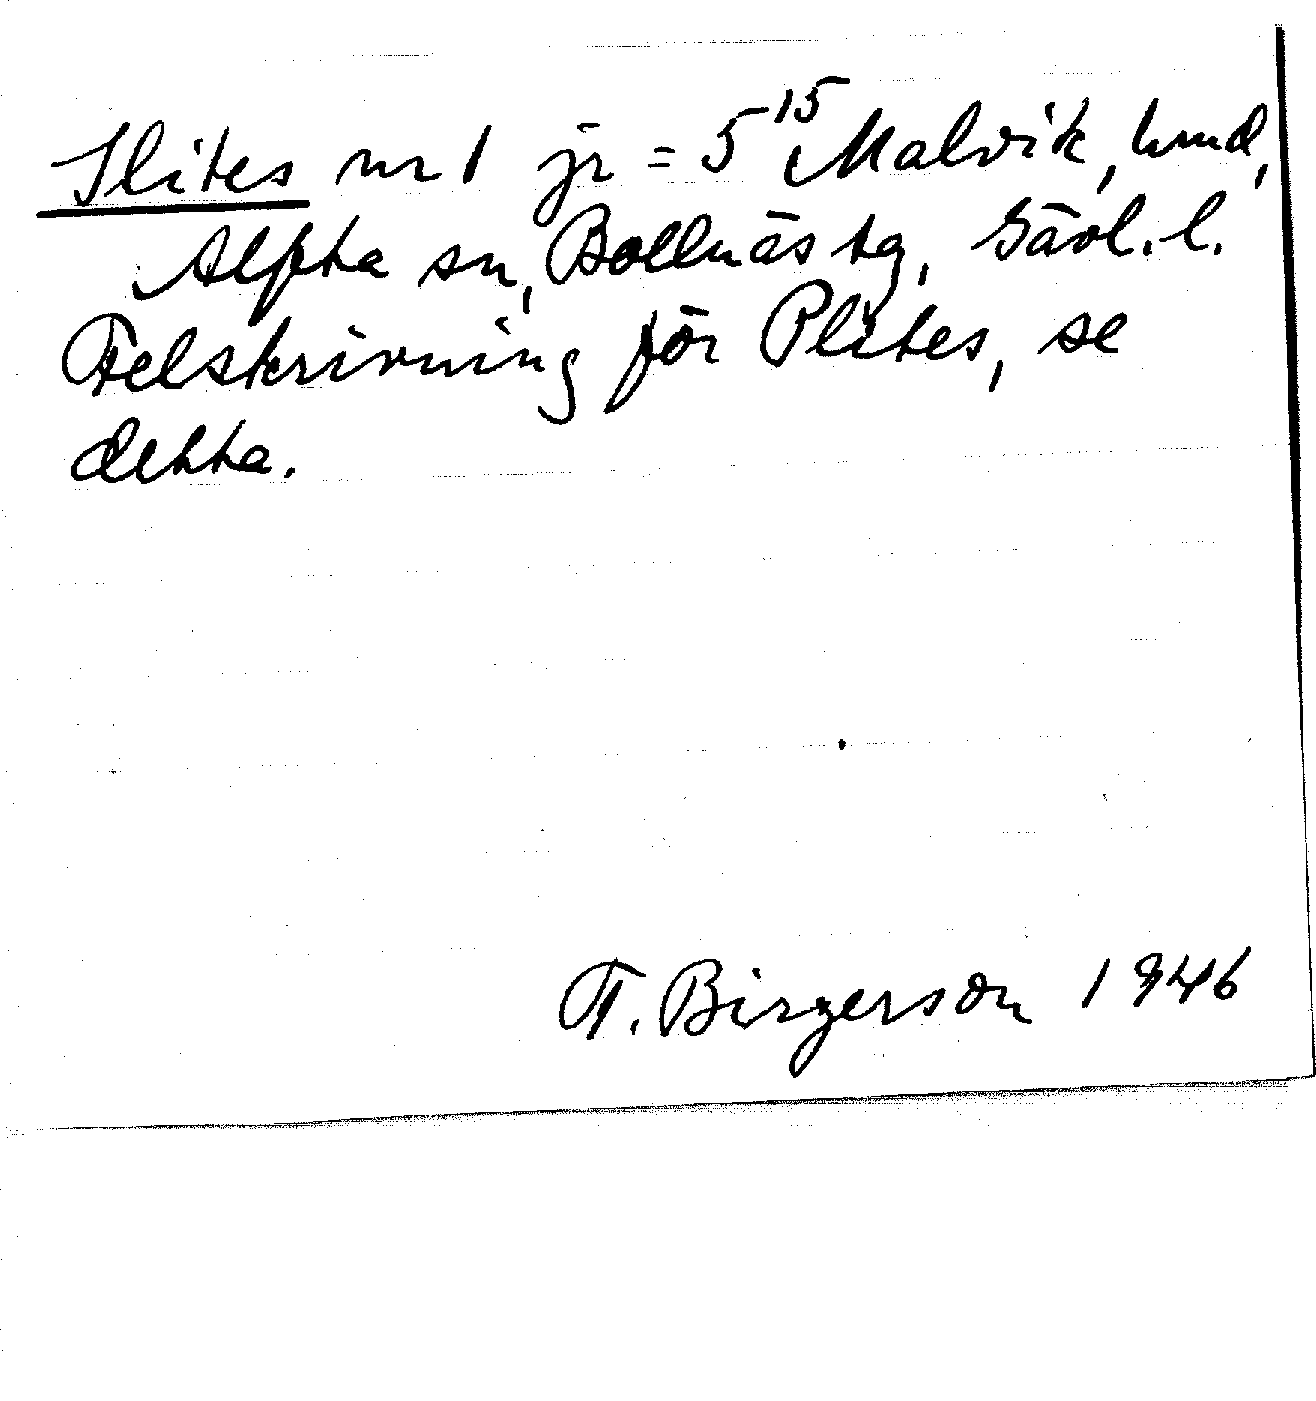 Ilites nr 1 jr = 5¹⁵ Malvik, hmd,
Alfta sn, Bollnäs tg, Gävl. l.
Felskrivning för Plites, se
detta.
T. Birgerson 1946